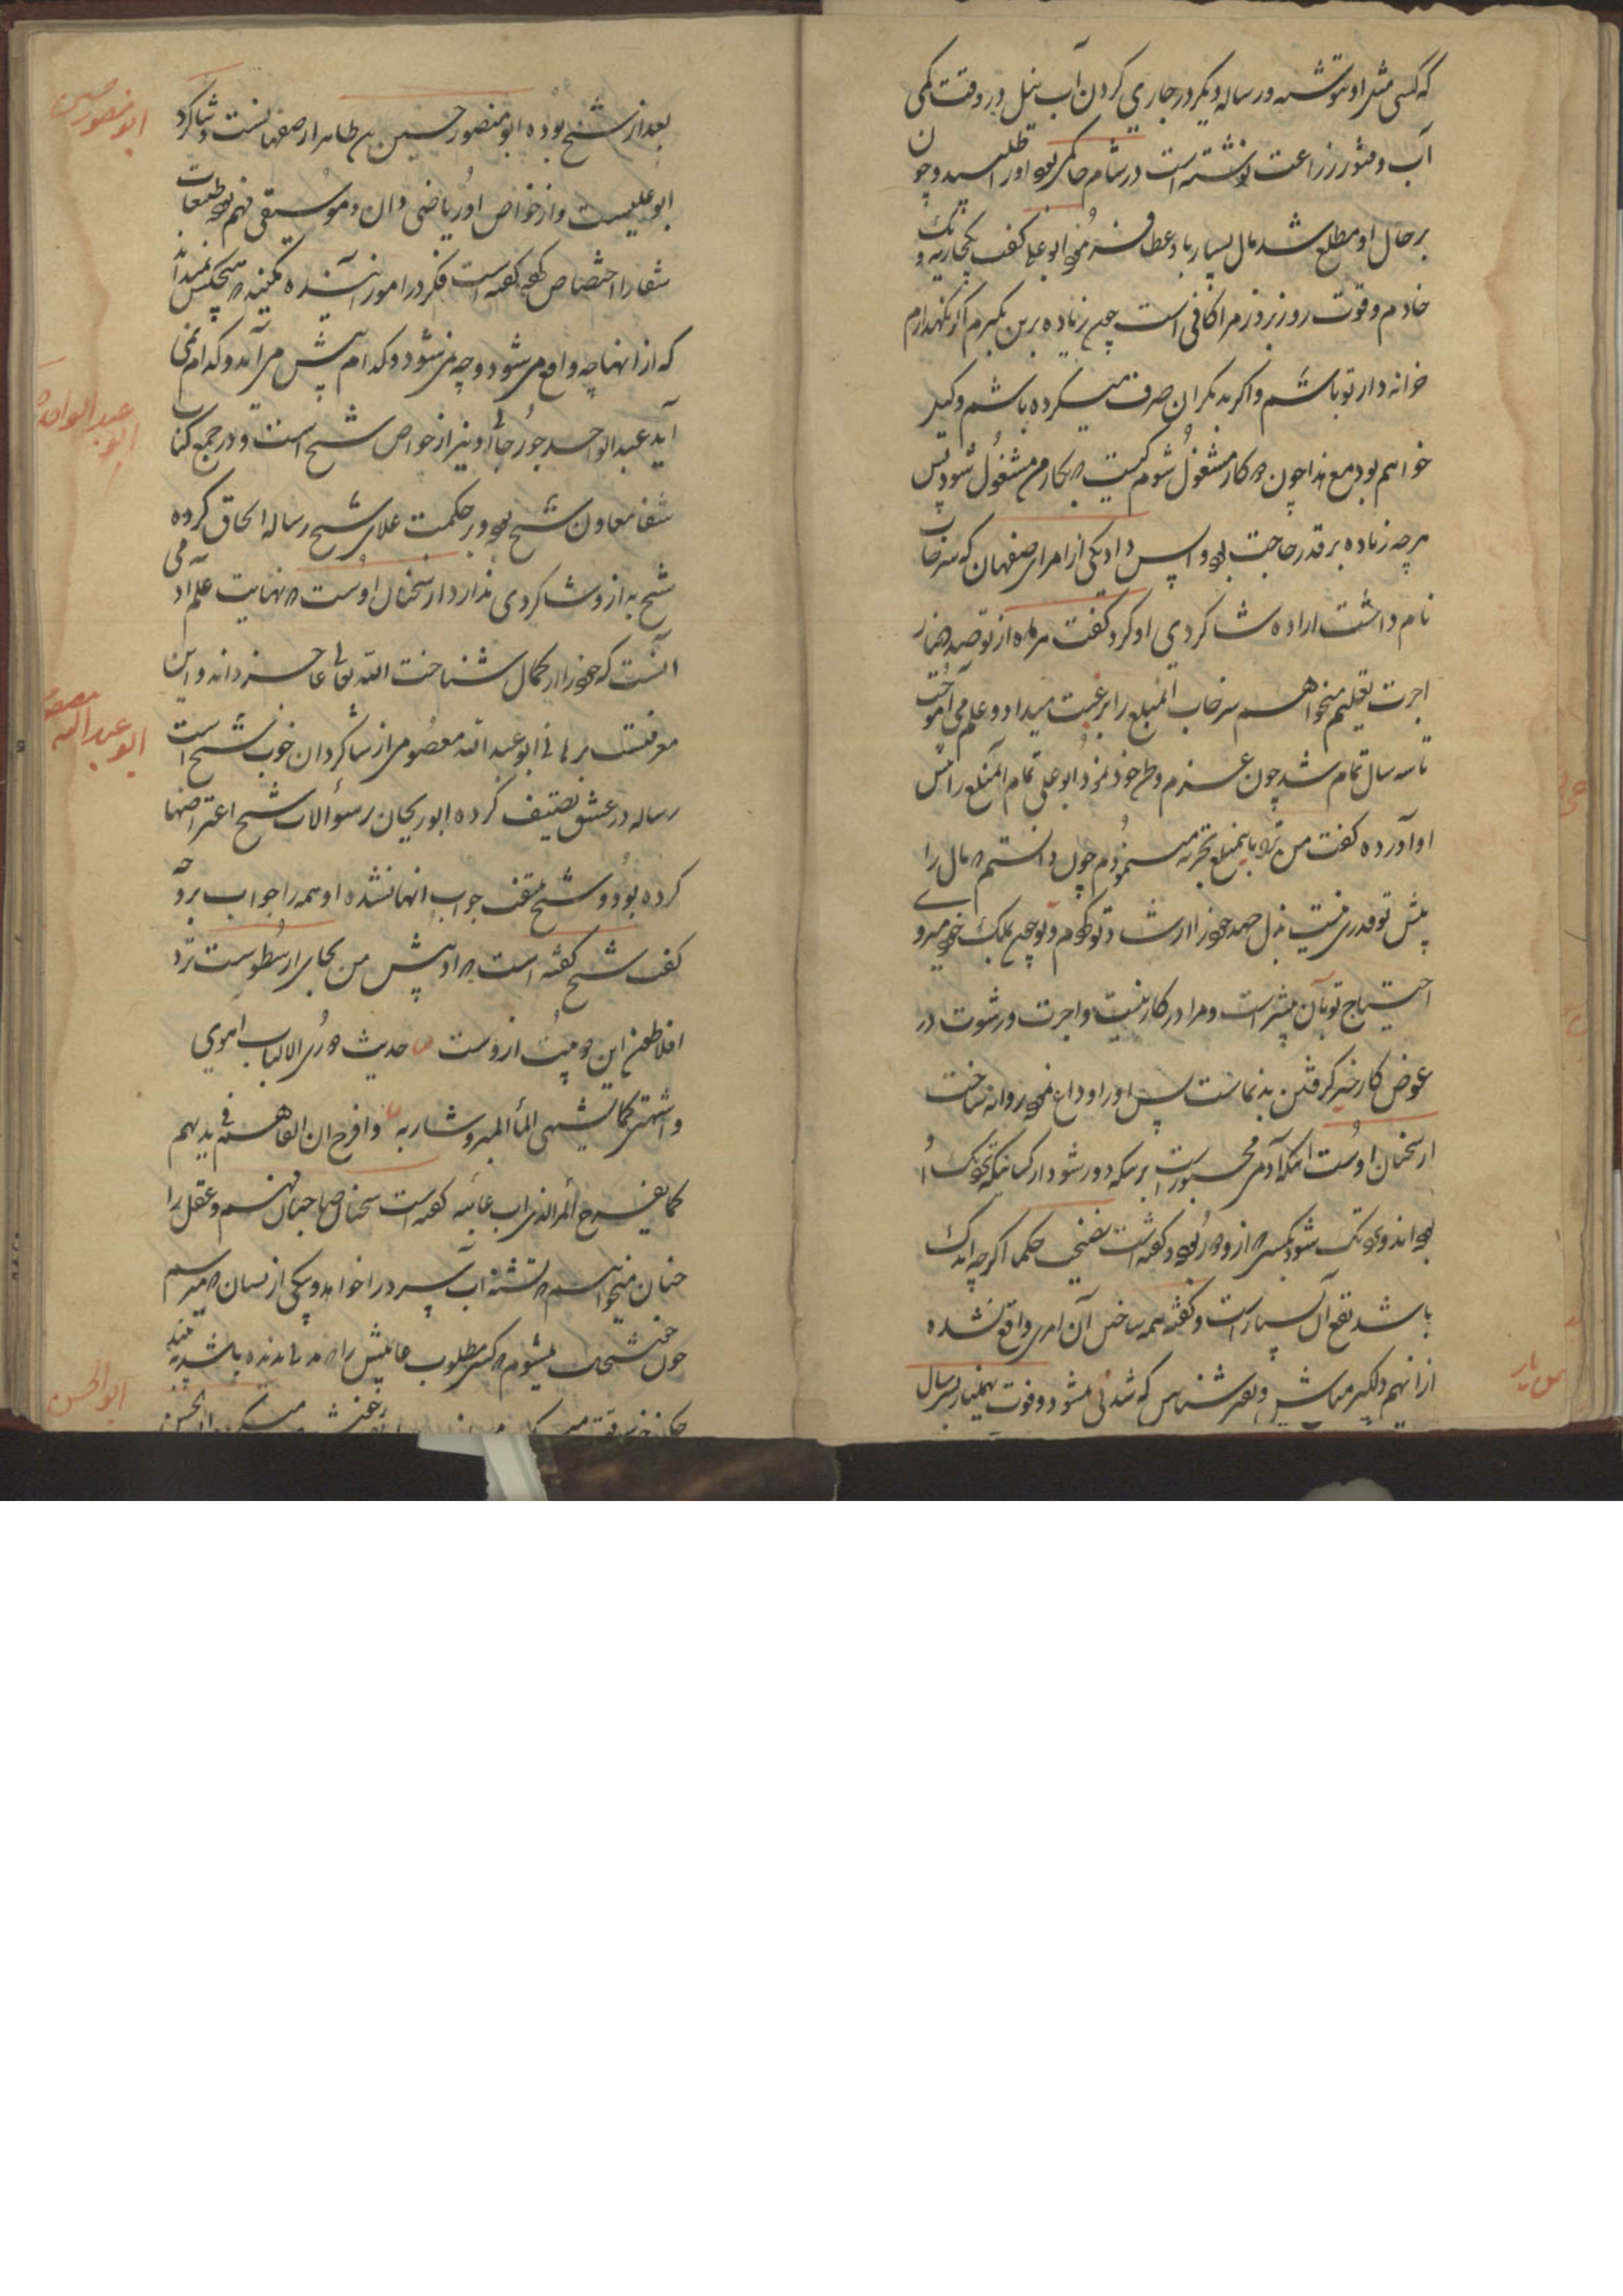 که کسی مثل او ننوشته و رساله دیگر در جاری کردن آب نیل در وقت کمی
آب و فتور زراعت نوشته است در شام حاکمی بود او را طلبید و چون
بر حال او مطلع شد مال بسیار باو عطا فرمود ابو علی گفت یک جاریه و یک
خادم و قوت روز بروز مرا کافی است چون زیاده برین بگیرم اگر نگهدارم
خزانه دار تو باشم و اگر بدیگران صرف کرده باشم وکیل
خواهم بود مع هذا چون به کار مشغول شوم کیست که بکار من مشغول شود پس
هرچه زیاده بر قدر حاجت بود واپس داد یکی از امرای صفهان که سرخاب
نام داشت اراده شاگردی او کرد گفت هر ماه از تو صد دینار
اجرت تعلیم میخواهم سرخاب آنمبلغ را برغبت میداد و علم می آموخت
تا سه سال تمام شد چون عزم وطن خود نمود ابو علی تمام آنمبلغ را پیش
او آورده گفت من ترا باینمبلغ تجربه مینمودم چون دانستم که مال را
پیش تو قدری نیست بذل جهد خود در ارشاد تو کردم و تو چون بملک خود میروی
احتیاج تو بآن بیشتر است و مرا در کار نیست و اجرت و رشوت در
عوض کار خیر گرفتن بدنماست پس او را وداع نموده روانه ساخت
از سخنان اوست که آدمی مجبور است بر اینکه دور شود از کسانیکه نزدیک او
بوده اند و نزدیک شود بکسی که ازو دور بوده و گفته است نصیحت حکما اگرچه اندک
باشد نفع آن بسیار است و گفته همه ساختن آن امری واقع نشده
از آنهم دلگیر مباش و بشناس که شدنی میشود و فوت بهمنیار سی سال
بعد از شیخ بوده ابو منصور حسین بن طاهر از صفهانست و شاگرد
ابو علیست و از خواص او ریاضی دان و موسیقی فهم بود طبیعات
شفا را اختصاص کرده گفته است فکر در امور آینده مکنید که هیچکس نمیداند
که از انها چه واقع می شود و چه نمی شود و کدام پیش می آید و کدام نمی
آید عبدالواحد جورجانی او نیز از خواص شیخ است و در جمع کتاب
شفا معاون شیخ بود و بر حکمت علای شیخ رساله الحاق کرده
شیخ به ازو شاگردی ندارد از سخنان اوست که نهایت علم آدمی
آنست که خود را از کمال شناخت الله تعالی عاجز داند و این
معرفتست برهانی ابو عبدالله معصومی از شاگردان خوب شیخ است
رساله در عشق تصنیف کرده ابو ریحان بر سؤالات شیخ اعتراضها
کرده بود و شیخ جواب انها نشده او همه را جواب بروجه
گفت شیخ گفته است که او پیش من بجای ارسطوست نزد
افلاطون این دو بیت ازوست حدیث ذوی الالباب اهوی
و اشتهی کما یشتهی الماء المبرد شاربه و افرح ان القاهم فی ندیهم
کما یفرح المرء الذی اب غائبه گفته است سخنان صاحبان فهم و عقل را
چنان میخواهم که تشنه آب سرد را خواهد و بیکی ازیشان که میرسم
چون خوشحال میشوم که کسی مطلوب غایبش را دیده باشد
ابو منصور حسین
عبدالواحد
ابو
ابو عبدالله معصومی
ابو الحسن